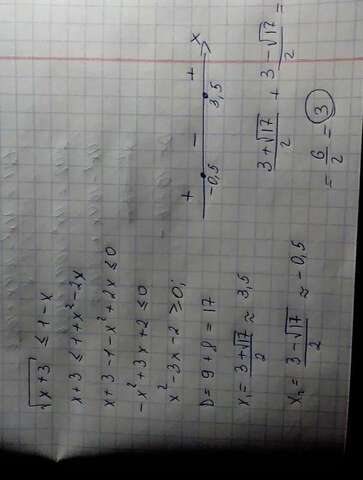 √x+3 ≤ 1-x
x+3 ≤ 1+x²-2x
x+3-1-x²+2x ≤ 0
-x²+3x+2 ≤ 0
x²-3x-2 ≥ 0;
D = 9+8 = 17
x₁ = (3+√17)/2 ≈ 3,5
x₂ = (3-√17)/2 ≈ -0,5
+ - + x
-0,5 3,5
(3+√17)/2 + (3-√17)/2 =
= 6/2 = 3